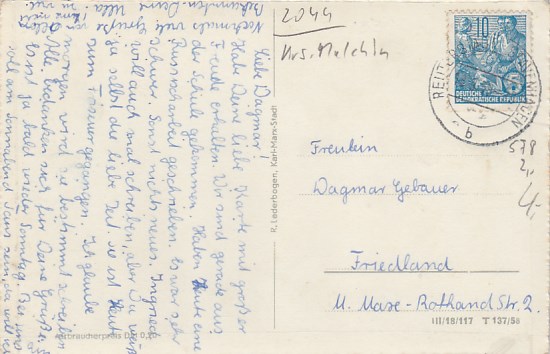 Liebe Dagmar!
Habe Deine liebe Karte mit großer
Freude erhalten. Wir sind gerade aus
der Schule gekommen. Haben heute eine
Russischarbeit geschrieben. Es war sehr
schwer. Sonst nichts neues. Ingried
will auch mal schreiben, aber Du weißt
ja selbst die liebe Zeit. Sie ist heut
zum Friseur gegangen. Ich glaube
morgen wird sie bestimmt schreiben
Alle bedanken sich für Deine Grüße.
ist ja bald wieder Sonntag. Bei uns
soll am Sonnabend Tanz sein, da will ich
Nochmals viele
Grüße
Deine Ulla
2044
Krs. Malchin
10
5
DEUTSCHE
DEMOKRATISCHE REPUBLIK
REUTER
b
578
2,-
4,-
Freulein
Dagmar Gebauer
Friedland
M. Maxe-Rothand Str. 2.
R. Lederbogen, Karl-Marx-Stadt
Verbraucherpreis DM 0,20
III/18/117 T 137/58